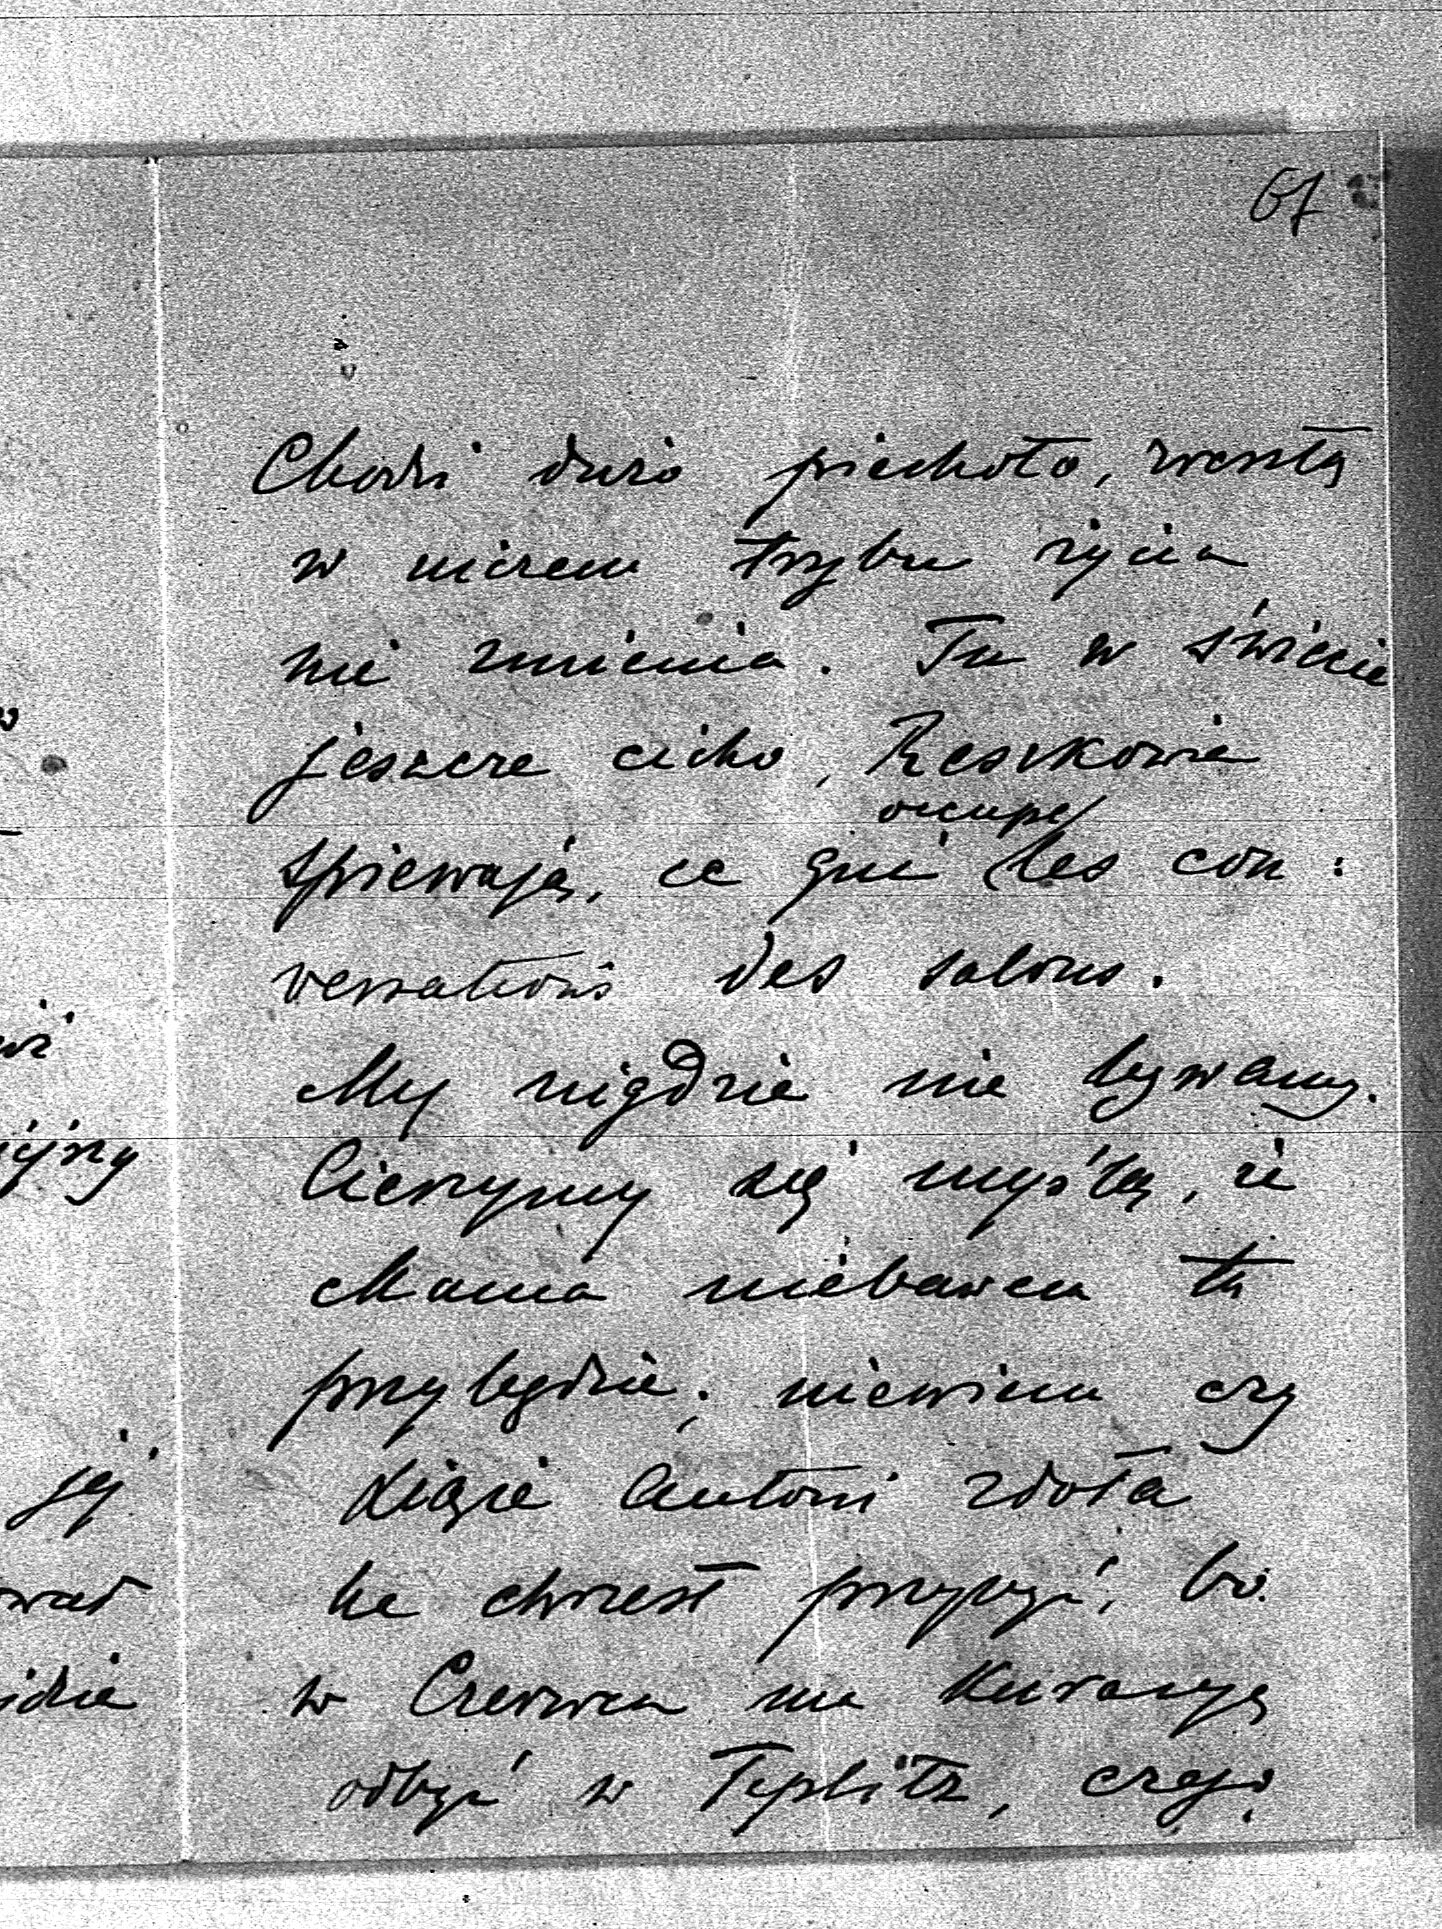 67
Chodzi dużo piechotą, zresztą
w niczem trybu życia
nie zmienia. Tu w świecie
jeszcze cicho, Reszkowie
occupe
śpiewają, ce qui les con:
versations des salons.
My nigdzie nie bywamy.
Cieszymy się myślą, że
Mama niebawem tu
przybędzie; niewiem czy
Xiąże Antoni zdoła
na chrzest przybyć, bo
w Czerwcu ma kuracyę
odbyć w Teplitz, czego